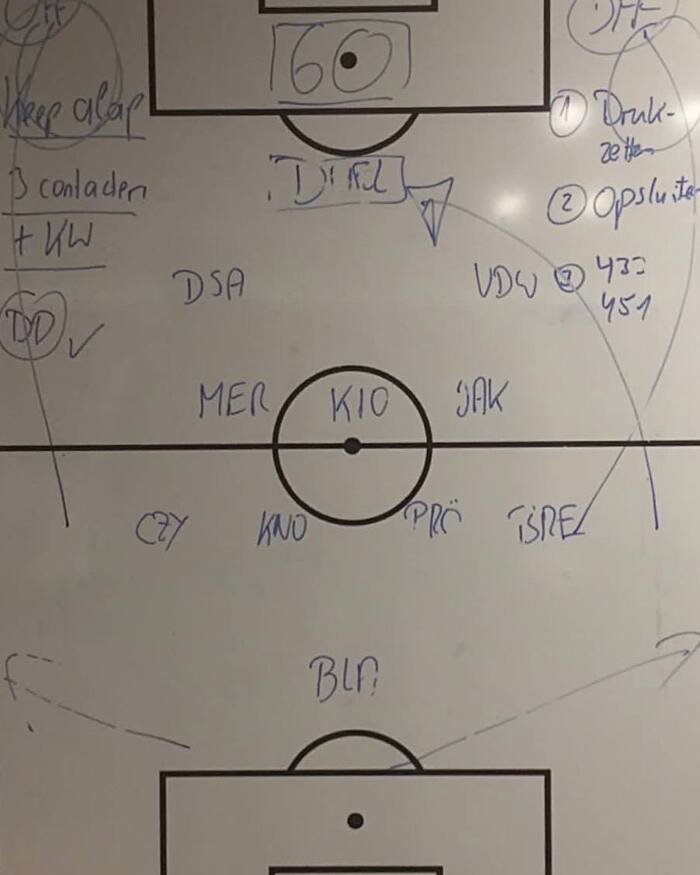 OFF
OFF
60
Keep alap
① Druk-
zetten
3 contacten
② Opsluiten
+ KW
DSA
VDW
③ 433
451
DD ✓
MER
KIO
JAK
CZY
KNO
PRÖ
BRE
BLA